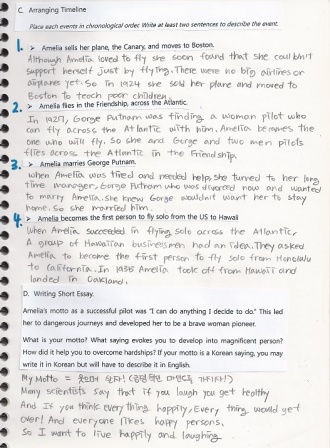 C. Arranging Timeline
Place each events in chronological order. Write at least two sentences to describe the event.
1. ➢ Amelia sells her plane, the Canary, and moves to Boston.
Although Amelia loved to fly she soon found that she couldn't
support herself just by flying. There were no big airlines or
airplanes yet. So in 1924 she sold her plane and moved to
Boston to teach poor children.
2. ➢ Amelia flies in the Friendship, across the Atlantic.
In 1927, Gorge Putnam was finding a woman pilot who
can fly across the Atlantic with him. Amelia becomes the
one who will fly. So she and Gorge and two men pilots
flies across the Atlantic in the Friendship.
3. ➢ Amelia marries George Putnam.
When Amelia was tired and needed help, she turned to her long
time manager, Gorge Putnam who was divorced now and wanted
to marry Amelia. She knew Gorge wouldn't want her to stay
home. So she married him.
4. ➢ Amelia becomes the first person to fly solo from the US to Hawaii
When Amelia succeeded in flying solo across the Atlantic,
A group of Hawaiian businessmen had an idea. They asked
Amelia to become the first person to fly solo from Honolulu
to California. In 1935 Amelia took off from Hawaii and
landed in Oakland.
D. Writing Short Essay.
Amelia's motto as a successful pilot was "I can do anything I decide to do." This led
her to dangerous journeys and developed her to be a brave woman pioneer.
What is your motto? What saying evokes you to develop into magnificent person?
How did it help you to overcome hardships? If your motto is a Korean saying, you may
write it in Korean but will have to describe it in English.
My Motto = 웃으며 살자! (긍정적인 마인드를 가지자!)
Many scientists say that if you laugh you get healthy
And if you think every thing happily, Every thing would get
over! And everyone likes happy persons.
So I want to live happily and laughing